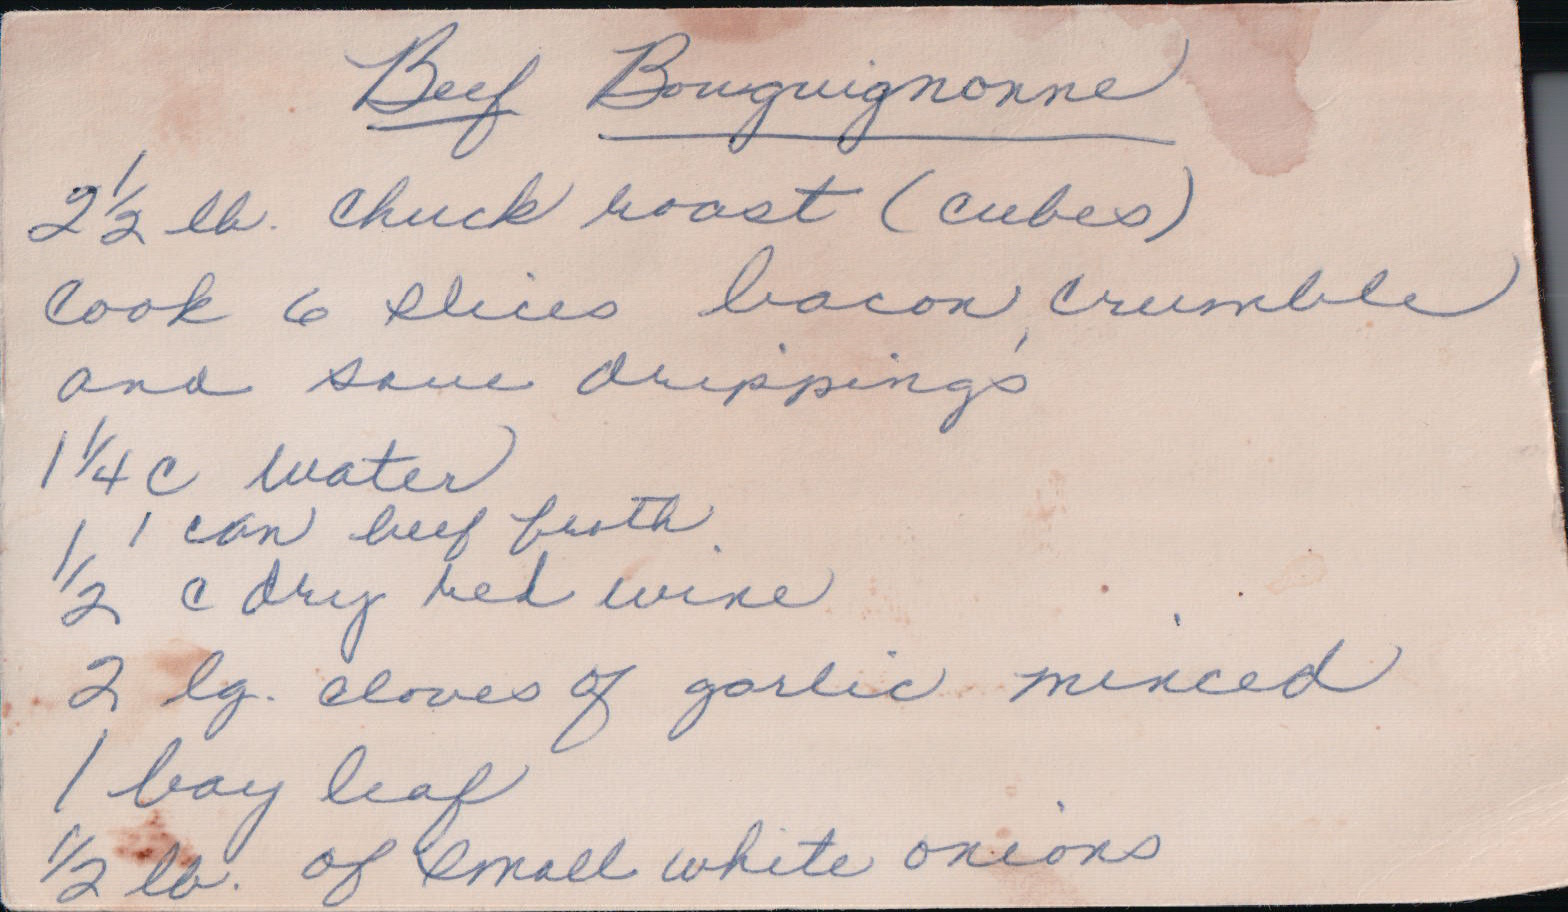 Beef Bouguignonne
2 1/2 lb. chuck roast (cubes)
cook 6 slices bacon, crumble
and save drippings
1 1/4 c water
1 can beef broth
1/2 c dry red wine
2 lg. cloves of garlic minced
1 bay leaf
1/2 lb. of small white onions